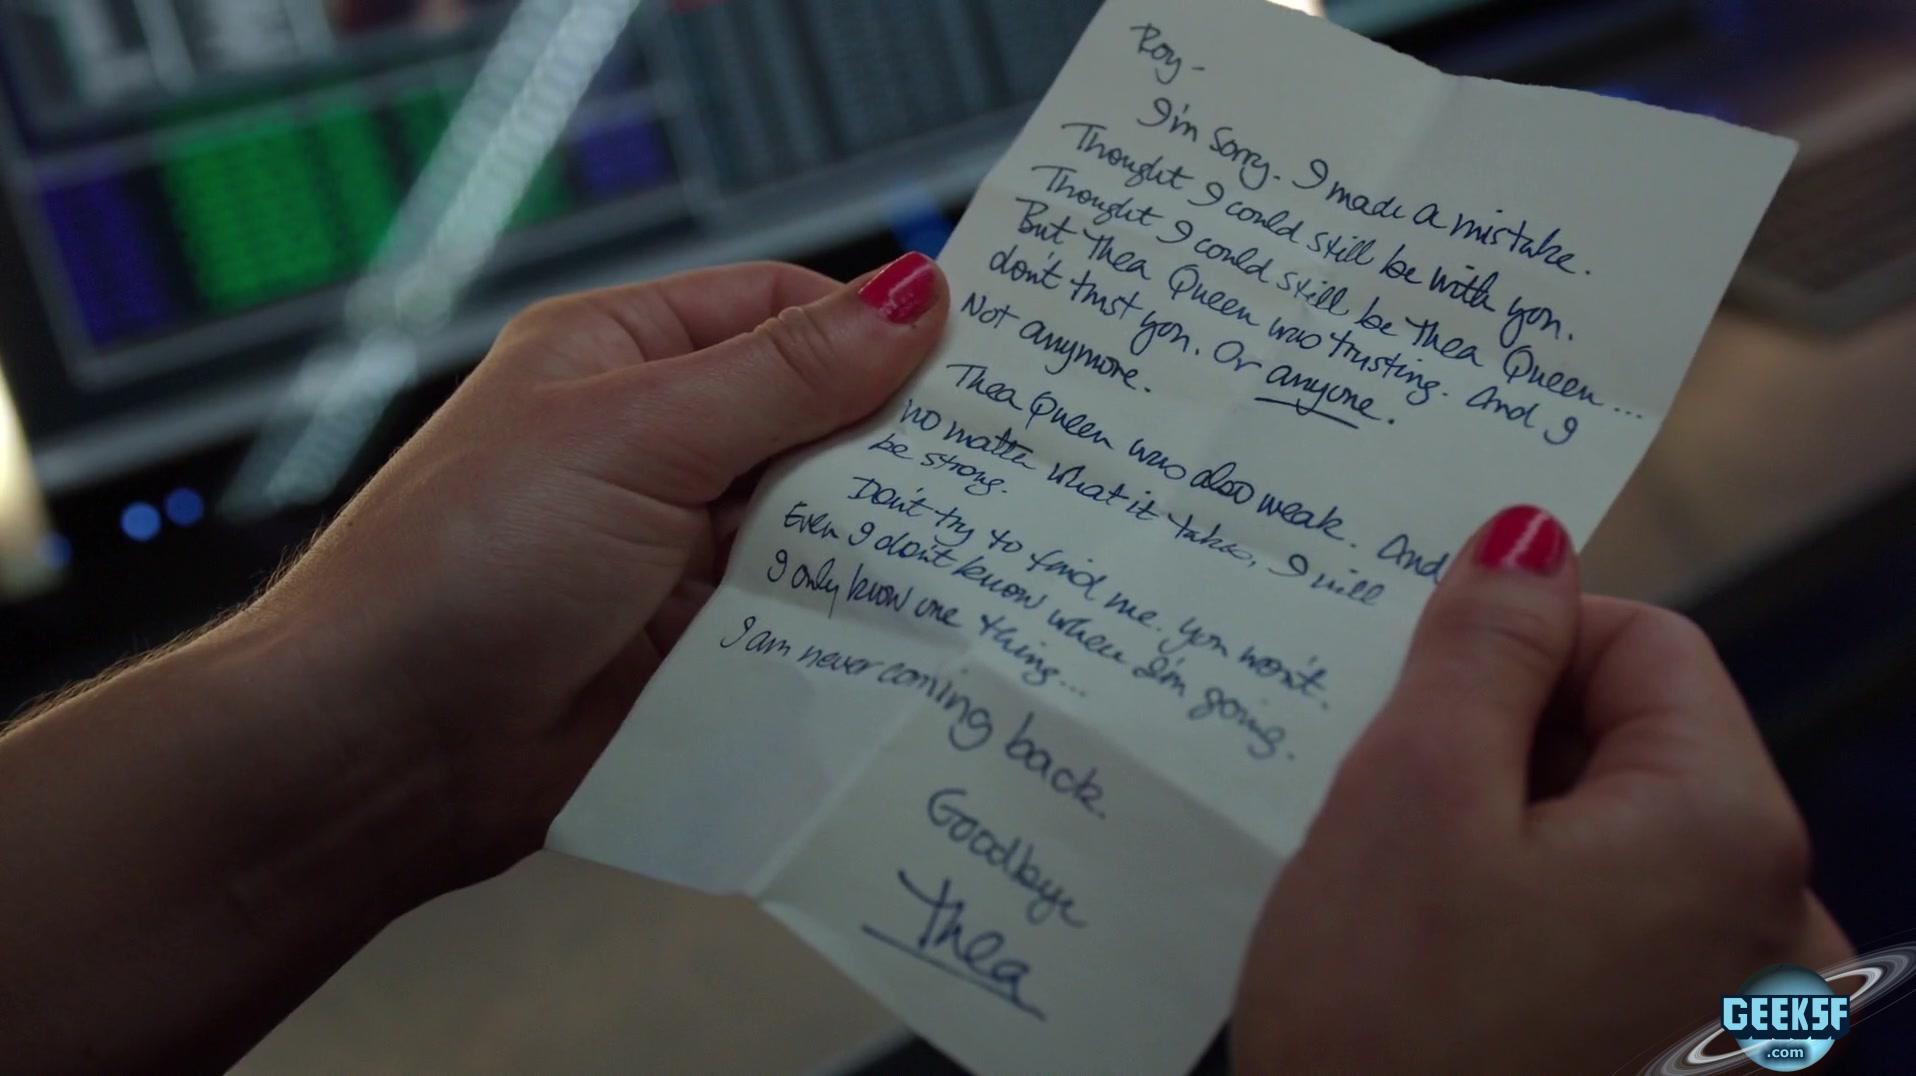 Roy-
I'm sorry. I made a mistake.
Thought I could still be with you.
Thought I could still be Thea Queen...
But Thea Queen was trusting. And I
don't trust you. Or anyone.
Not anymore.
Thea Queen was also weak. And
no matter what it takes, I will
be strong.
Don't try to find me. You won't.
Even I don't know when I'm going.
I only know one thing...
I am never coming back.
Goodbye
Thea
GEEKSF
.com